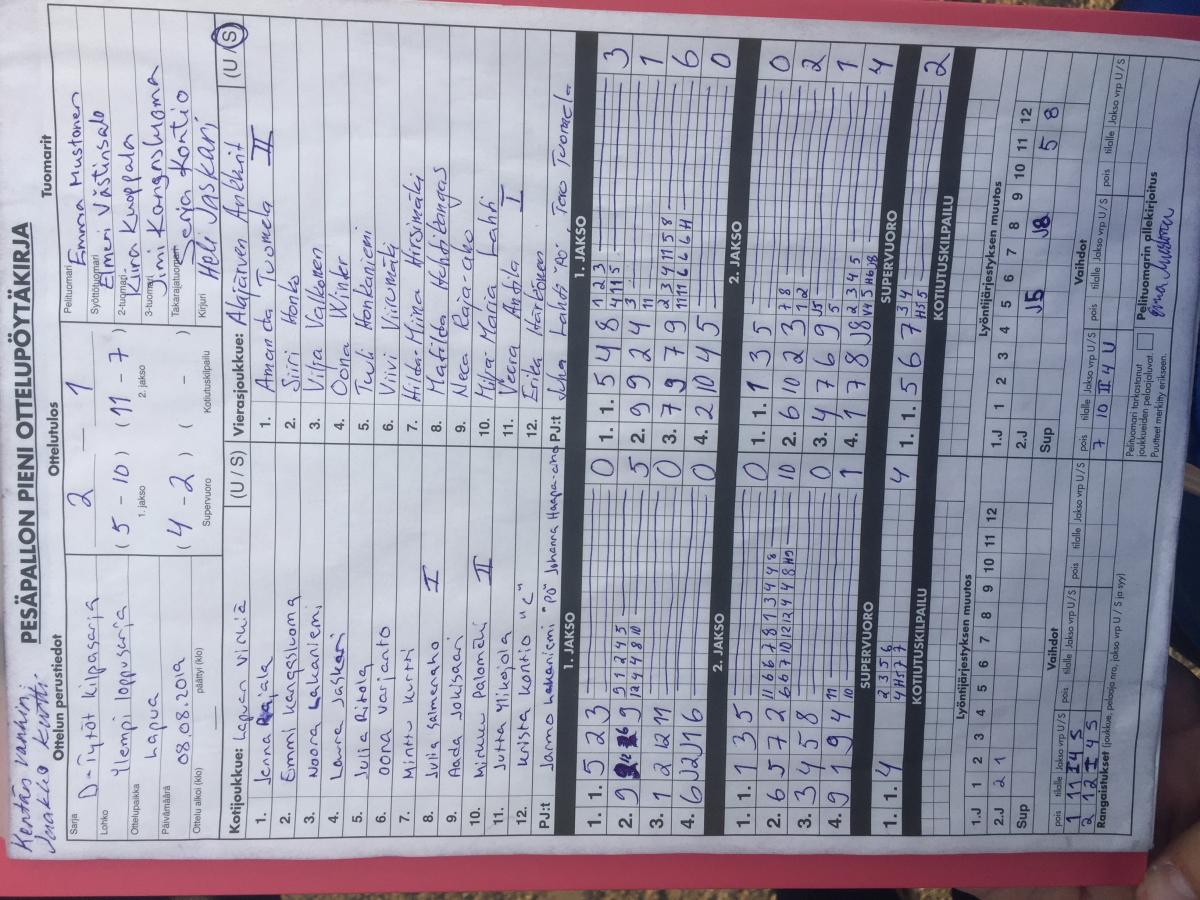 Kentän vanhin:
Jaakko Kurtti
PESÄPALLON PIENI OTTELUPÖYTÄKIRJA
Ottelun perustiedot
Sarja D-tytöt kilpasarja
Lohko Ylempi loppusarja
Ottelupaikka Lapua
Päivämäärä 08.08.2019
Ottelu alkoi (klo) päättyi (klo)
Ottelutulos
2 – 1
(5 - 10) (11 - 7)
1. jakso 2. jakso
(4 - 2) ( - )
Supervuoro Kotiutuskilpailu
Tuomarit
Pelituomari Emma Mustonen
Syöttötuomari Elmeri Västinsalo
2-tuomari Kira Kuoppala
3-tuomari Jimi Kangasluoma
Takarajatuomari Seija Kontio
Kirjuri Heli Jaskari
Kotijoukkue: Lapuan Virkiä (U / S)
1. Jenna Rajala
2. Emmi Kangasluoma
3. Noora Lakaniemi
4. Laura Jaskari
5. Julia Ritola
6. Oona Varjanto
7. Minttu Kurtti
8. Julia Salmenaho I
9. Aada Jokisaari
10. Mirkku Palomäki II
11. Jutta Ylikojola
12. Krista Kontio "C"
PJ:t Jarmo Lakaniemi "PÖ" Johanna Haapa-aho
Vierasjoukkue: Alajärven Ankkurit (U / S)
1. Amanda Tuomela II
2. Siiri Honko
3. Viira Valkonen
4. Oona Winter
5. Tuuli Honkaniemi
6. Viivi Viirumäki
7. Hilda-Miina Hirsimäki
8. Matilda Mehtikangas
9. Neea Raja-aho
10. Milja-Maria Lahti
11. Veera Anttila I
12. Erika Häkkinen
PJ:t Juha Lahti "PÖ" Tero Tuomela
1. JAKSO
1. 1. 5 2 3 0
2. 9 9 5
9 1 2 4 5
12 4 4 8 10
3. 1 12 11 0
4. 6 J2 J1 6 0
2. JAKSO
1. 1. 1 3 5 0
2. 6 5 7 2 10
11 6 6 7 8 1 3 4 4 8
6 6 7 10 12 12 4 4 8 H9
3. 3 4 5 8 0
4. 9 1 9 4 1
11
10
SUPERVUORO
1. 1. 4 4
2 3 5 6
4 H5 7 7
KOTIUTUSKILPAILU
1. JAKSO
1. 1. 5 4 8 3
1 2 3
4 11 5
2. 9 9 2 4 1
3
11
3. 7 9 7 9 6
2 3 9 11 5 8
11 11 6 6 6 H
4. 2 10 4 5 0
2. JAKSO
1. 1. 1 3 5 0
2. 6 10 2 3 2
7 8
1 2
3. 4 7 6 9 1
J5
5
4. 1 7 8 J8 4
2 3 4 5
V4 5 H6 J8
SUPERVUORO
1. 1. 5 6 7 2
3 4
H5 5
KOTIUTUSKILPAILU
Lyöntijärjestyksen muutos
1.J 1 2 3 4 5 6 7 8 9 10 11 12
2.J 2 1
Sup
Vaihdot
pois tilalle Jakso vrp U / S pois tilalle Jakso vrp U / S pois tilalle Jakso vrp U / S
1 11 I 4 S
2 12 I 4 S
Rangaistukset (joukkue, pelaaja nro, jakso vrp U / S ja syy)
Lyöntijärjestyksen muutos
1.J 1 2 3 4 5 6 7 8 9 10 11 12
2.J J5 J8 5 8
Sup
Vaihdot
pois tilalle Jakso vrp U / S pois tilalle Jakso vrp U / S pois tilalle Jakso vrp U / S
7 10 II 4 U
Pelituomari tarkastanut
joukkueiden pelaajaluvat.
Puutteet merkitty erikseen.
Pelituomarin allekirjoitus